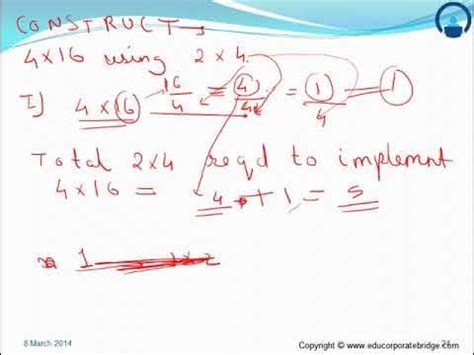 CONSTRUCT →
4x16 using 2 x 4.
I) 4 x 16 16/4 = 4/4 = 1/4 = 1
Total 2x4 reqd to implemnt
4x16 = 4 + 1 = 5
1
8 March 2014
Copyright © www.educorporatebridge.com
24